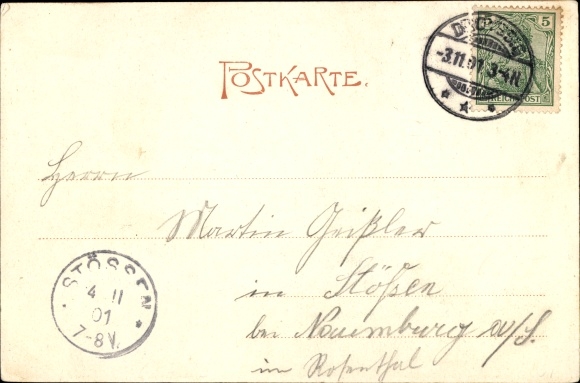 5
REICHSPOST
-3.11.01. 3-4N.
POSTKARTE.
Herrn
Martin Geißler
in Stößen
bei Naumburg a/S.
im Rosenthal
STÖSSEN
4 11
01
7-8V.